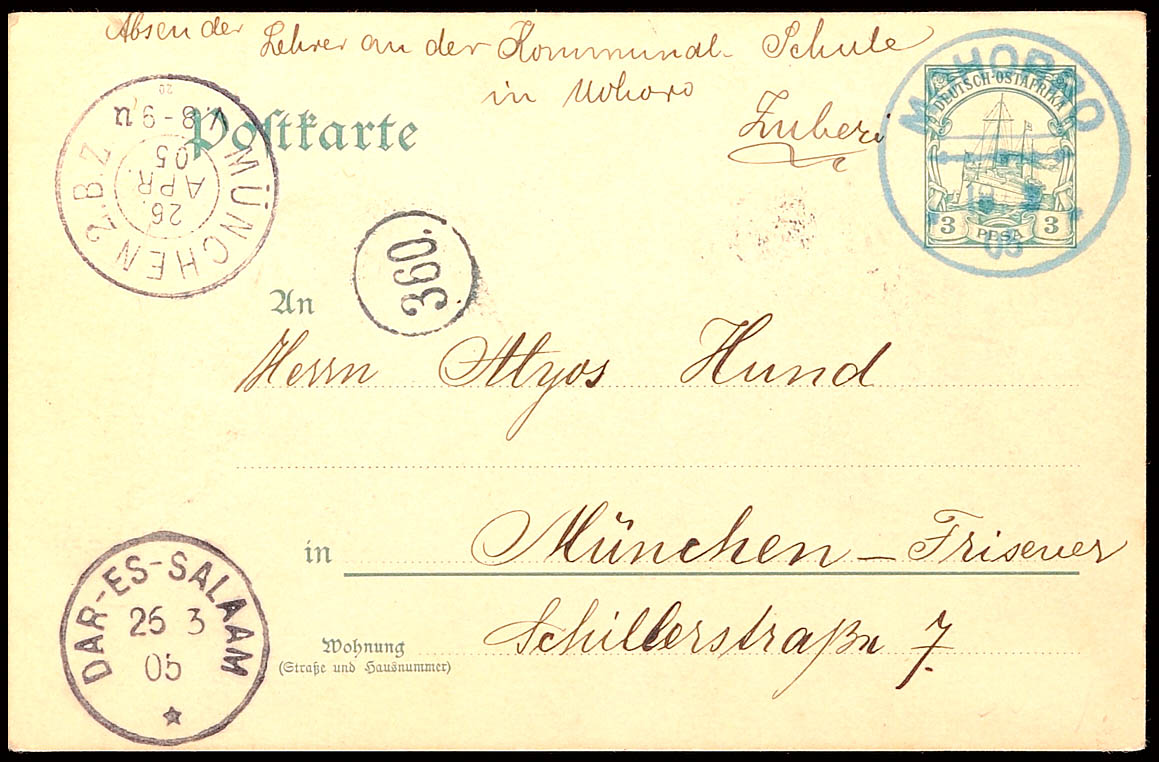 Absender
Lehrer an der Kommunal-Schule
in Mohoro
Zuberi
Postkarte
DEUTSCH-OSTAFRIKA
3 PESA 3
MOHORRO
05
MÜNCHEN 2.B.Z.
V. 8-9 N
26.
APR.
05
20
360.
An
Herrn Alyos Hund
in München - Frisener
Schillerstraße 7.
Wohnung
(Straße und Hausnummer)
DAR-ES-SALAAM
25 3
05